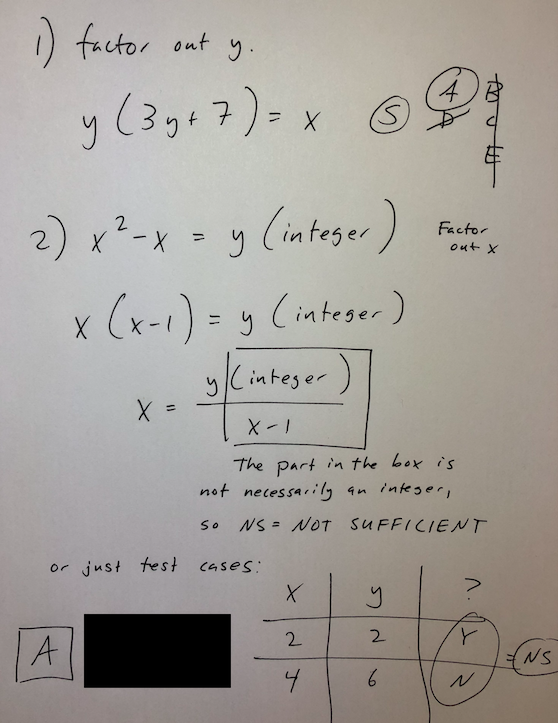 1) factor out y.
y (3y + 7) = x   S   A B
D C
E
2) x² - x = y (integer)   Factor out x
x (x-1) = y (integer)
x = y (integer) / x-1
The part in the box is
not necessarily an integer,
so NS = NOT SUFFICIENT
or just test cases:
x y ?
2 2 Y
4 6 N = NS
A